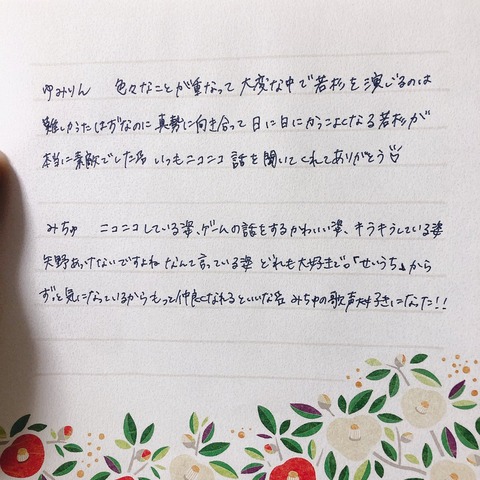 ゆみりん 色々なことが重なって大変な中で若杉を演じるのは
難しかったはずなのに真勢に向き合って日に日にかっこよくなる若杉が
本当に素敵でした いつもニコニコ話を聞いてくれてありがとう
みちゅ ニコニコしている姿、ゲームの話をするかわいい姿、キラキラしている姿
矢野あっけないですよね なんて言っている姿 どれも大好きで。「せいうち」から
ずっと気になっているからもっと仲良くなれるといいな みちゅの歌声大好きになった!!